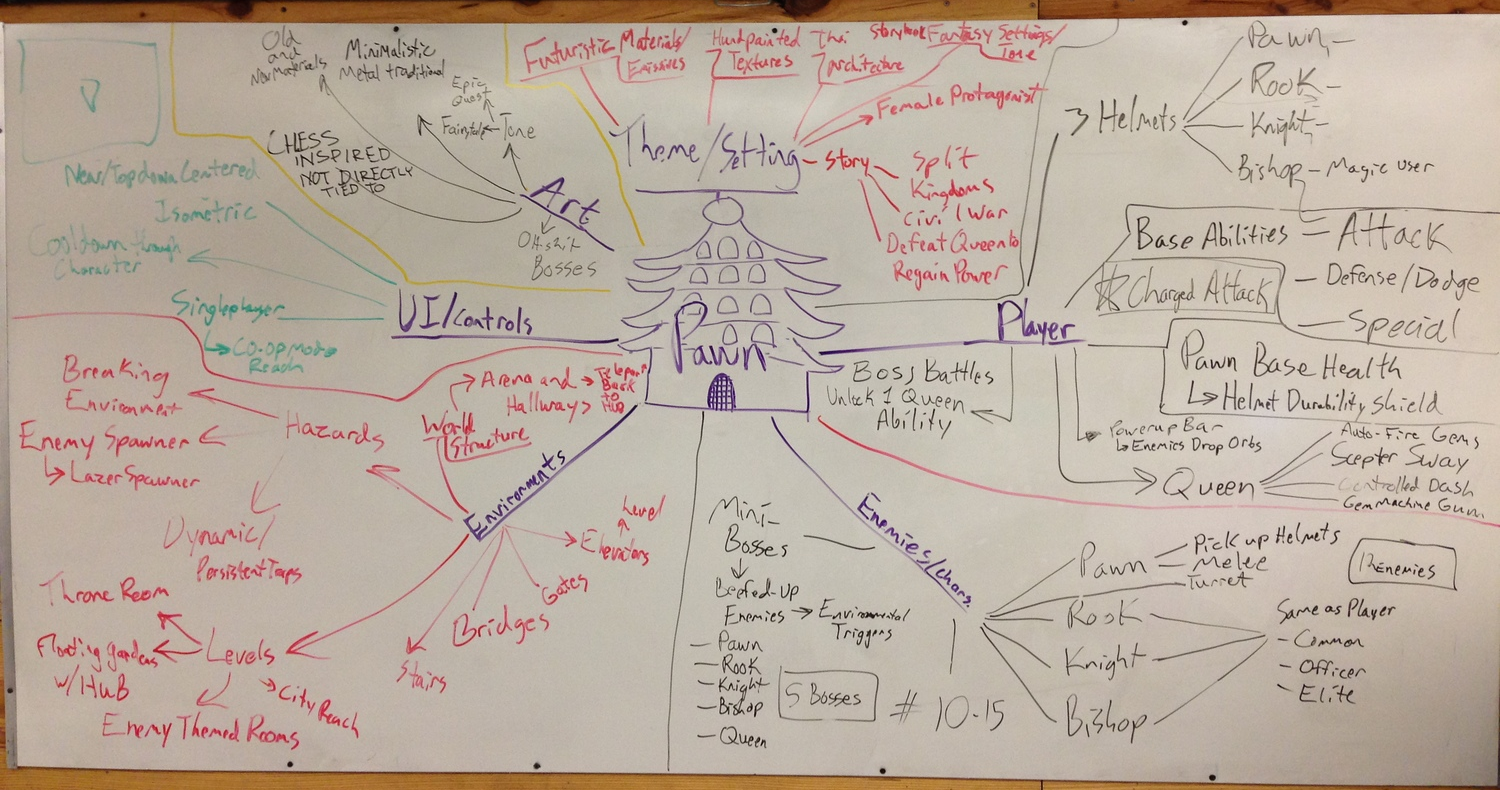 Old
and
New Materials
Minimalistic
Metal traditional
Epic
Quest
Fairytale
Tone
CHESS
INSPIRED
NOT DIRECTLY
TIED TO
Art
Bosses
Futuristic Materials/
Emissives
Handpainted
Textures
Thai
Architecture
Storybook Fantasy Settings/
Tone
Female Protagonist
Theme/Setting
Story
Split
Kingdoms
Civil War
Defeat Queen to
Regain Power
Near/Topdown Centered
Isometric
Cooldown through
Character
Singleplayer
CO-OP Mode
Reach
UI/Controls
Pawn
Player
3 Helmets
Pawn
Rook
Knight
Bishop - Magic user
Base Abilities
Attack
Defense/Dodge
Special
Charged Attack
Pawn Base Health
Helmet Durability Shield
Boss Battles
Unlock 1 Queen
Ability
Powerup Bar
Enemies Drop Orbs
Queen
Auto-Fire Gems
Scepter Sway
Controlled Dash
Gem Machine Gun
Breaking
Environment
Enemy Spawner
Lazer Spawner
Hazards
Dynamic/
Persistent Traps
World
Structure
Arena and
Hallways
Teleport
Back
to
HUB
Environments
Level
Elevators
Gates
Bridges
Stairs
Throne Room
Floating gardens
w/HUB
Levels
City Reach
Enemy Themed Rooms
Mini-
Bosses
Beefed-Up
Enemies
Environmental
Triggers
- Pawn
- Rook
- Knight
- Bishop
- Queen
5 Bosses
Enemies/chars.
# 10-15
Pawn
Pick up Helmets
Melee
Turret
Rook
Knight
Bishop
Same as Player
- Common
- Officer
- Elite